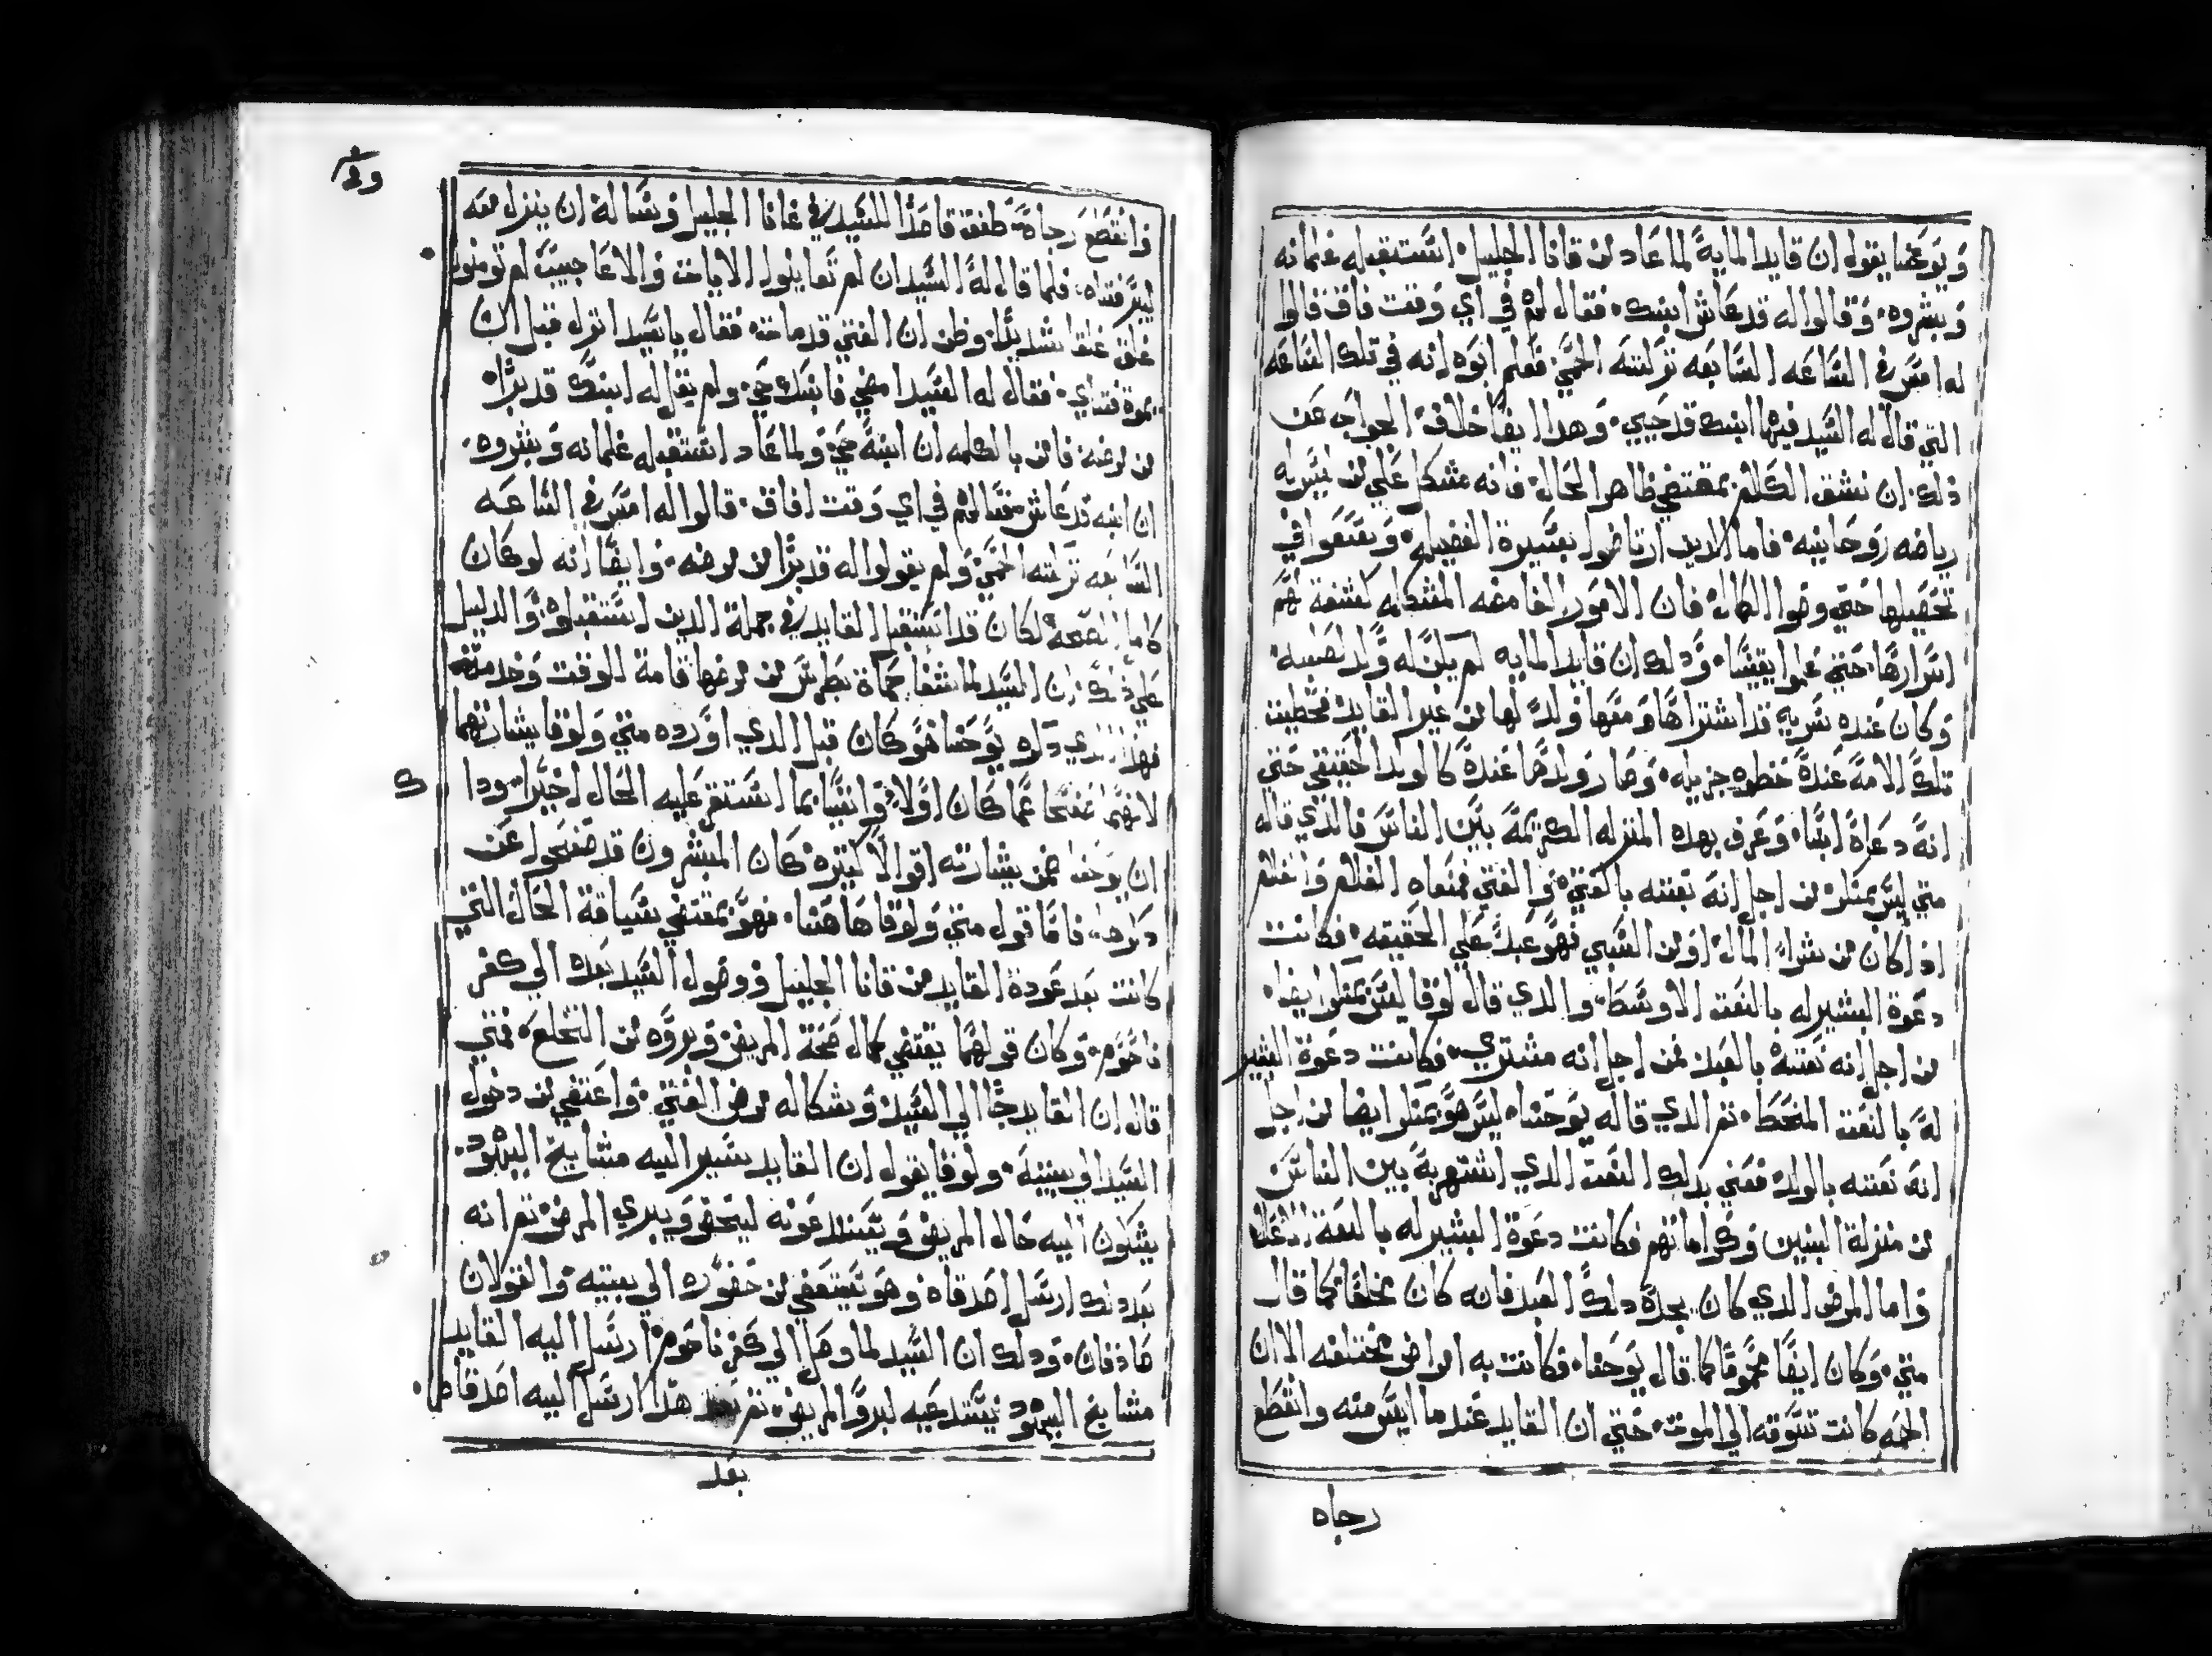 ويوحنا يقول ان قايد الماية لما عاد من قانا الجليل استقبله غلمانه
وبشروه وقالوا له قد عاش ابنك فقال لهم في اي وقت فاق قالوا
له امس في الساعه السابعه تركته الحمي فعلم ابوه انه في تلك الساعه
التي قال له السيد فيها ابنك قد حيي وهدا ايضا خلاف الجواب عن
دلك ان نسق الكلام بمقتضي ظاهر الحال فانه مشكل علي من ليس له
رياضه روحانيه فاما الدين ارتاضوا بسيرة الفضيله وتعنوا في
تحصيلها حتي وصوا الكمال فان الامور الغامضه المشكله كشفة لهم
اسرارها حتي علموا يقينا ودلك ان قايد المايه لم يكن له ولد لصلبه
وكان عنده سريه قد اشتراها ومعها ولد لها من غير القايد فحظيت
تلك الامة عندة حظوه جزيله وصار ولدها عندة كالولد الحقيقي حتي
انه دعاة ابنا وعرف بهده المنزله الكريمة بين الناس فالدي قاله
متي ليس بمنكر من اجل انه نعته بالفتي والفتي فمعناه الغلام والغلام
اذا كان من شراء المال او من السبي فهو عبد علي الحقيقه فكانت
دعوة البشير له بالنعت الاوسط والدي قال لوقا ليس بمنكر ايضا
من اجل انه نعته بالعبد فمن اجل انه مشتري فكانت دعوة البشير
له بالنعت المنحط ثم الدي قاله يوحنا ليس هو بمنكر ايضا من اجل
انه نعته بالولد فعني بدلك النعت الدي اشتهر بة بين الناس
من منزلة البنين وكراماتهم فكانت دعوة البشير له بالنعة الاعلا
واما المرض الدي كان يجدة دلك العبد فانه كان مخلعا كما قال
متي وكان ايضا محموما كما قال يوحنا فكانت به امراض مختلفه الا ان
الحمه كانت تسوقه الي الموت حتي ان القايد عندما ايس منه وانقطع
رجاه
وانقطع رجاة طفق قاصدا السيد في قانا الجليل وسالة ان ينزل معه
ليبر فتاه فلما قال له السيد ان لم تعاينوا الايات والاعاجيب لم تومنوا
غلق غلقا شديدا وظن ان الفتي قد مات فقال يا سيد انزل قبل ان
يموة فتاي فقال له السيد امضي فابنك حي ولم يقل له ابنك قد برا
من مرضه فامن بالكلمه ان ابنة حي ولما عاد استقبله غلمانه وبشروه
ان ابنه قد عاش فسالهم في اي وقت افاق قالوا له امس في الساعه
السابعه تركته الحمي ولم يقولوا له قد برا من مرضه وايضا انه لو كان
كامل الصحة لكان قد استقبل القايد في جملة الدين استقبلوه والدليل
علي دلك ان السيد لما شفا حماة بطرس من مرضها قامة للوقت وخدمتهم
فهدا الدي دكره يوحنا هو كان قبل الدي اورده متي ولوقا بشارتهما
لانهما صفحا عما كان اولا واتيا بما استقر عليه الحال اخيرا ودا
ان يوحنا ضمن بشارته اقوالا كثيرة كان المبشرون قد صفحوا عن
دكرها فاما قول متي ولوقا هاهنا فهو بمقتضي سياقة الحال التي
كانت بعد عودة القايد من قانا الجليل ووصول السيد بعده الي كفر
ناحوم وكان قولهما يقتضي كمال صحة المريض وبروه من التخلع فمتي
قال ان القايد جا الي السيد وشكا له مرض الفتي واعتفي من دخول
السيد الي بيتة ولوقا يقول ان القايد سير اليه مشايخ اليهود
يشكون اليه حال المريض ويستدعونه ليحضر ويبري المرض ثم انه
بعد دلك ارسل اصدقاه وهو يستعفي من حضوره الي بيته والقولان
صادقان ودلك ان السيد لما وصل الي كفر ناحوم ارسل اليه القايد
مشايخ اليهود يستدعيه لبرو المريض ثم بعد هدا ارسل اليه اصدقاه
بعد